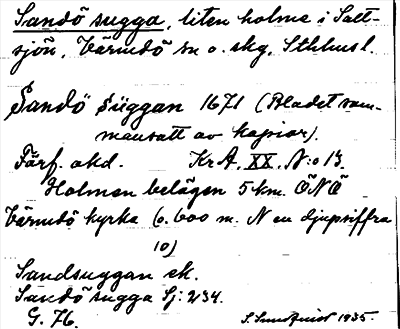 Sandö sugga, liten holme i Salt-
sjön, Värmdö sn o. skg, Sthlms l.
Sandö Süggan 1671 (Bladet sam-
mansatt av kopior).
Förf. okd. Kr A, XX, N:o 13.
Holmen belägen 5 km. ÖNÖ
Värmdö kyrka (o. 600 m. N en djupsiffra
10)
Sandsuggan ek.
Sandö sugga Sj: 234.
G. 76. S. Sundqvist 1935.